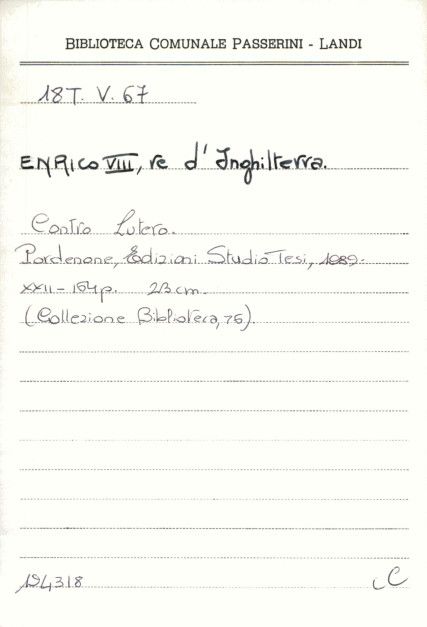 BIBLIOTECA COMUNALE PASSERINI - LANDI
18T. V. 67
ENRICO VIII, re d'Inghilterra.
Contro Lutero.
Pordenone, Edizioni Studio Tesi, 1989.
XXII - 164 p. 23 cm.
(Collezione Biblioteca, 76).
194318
iC